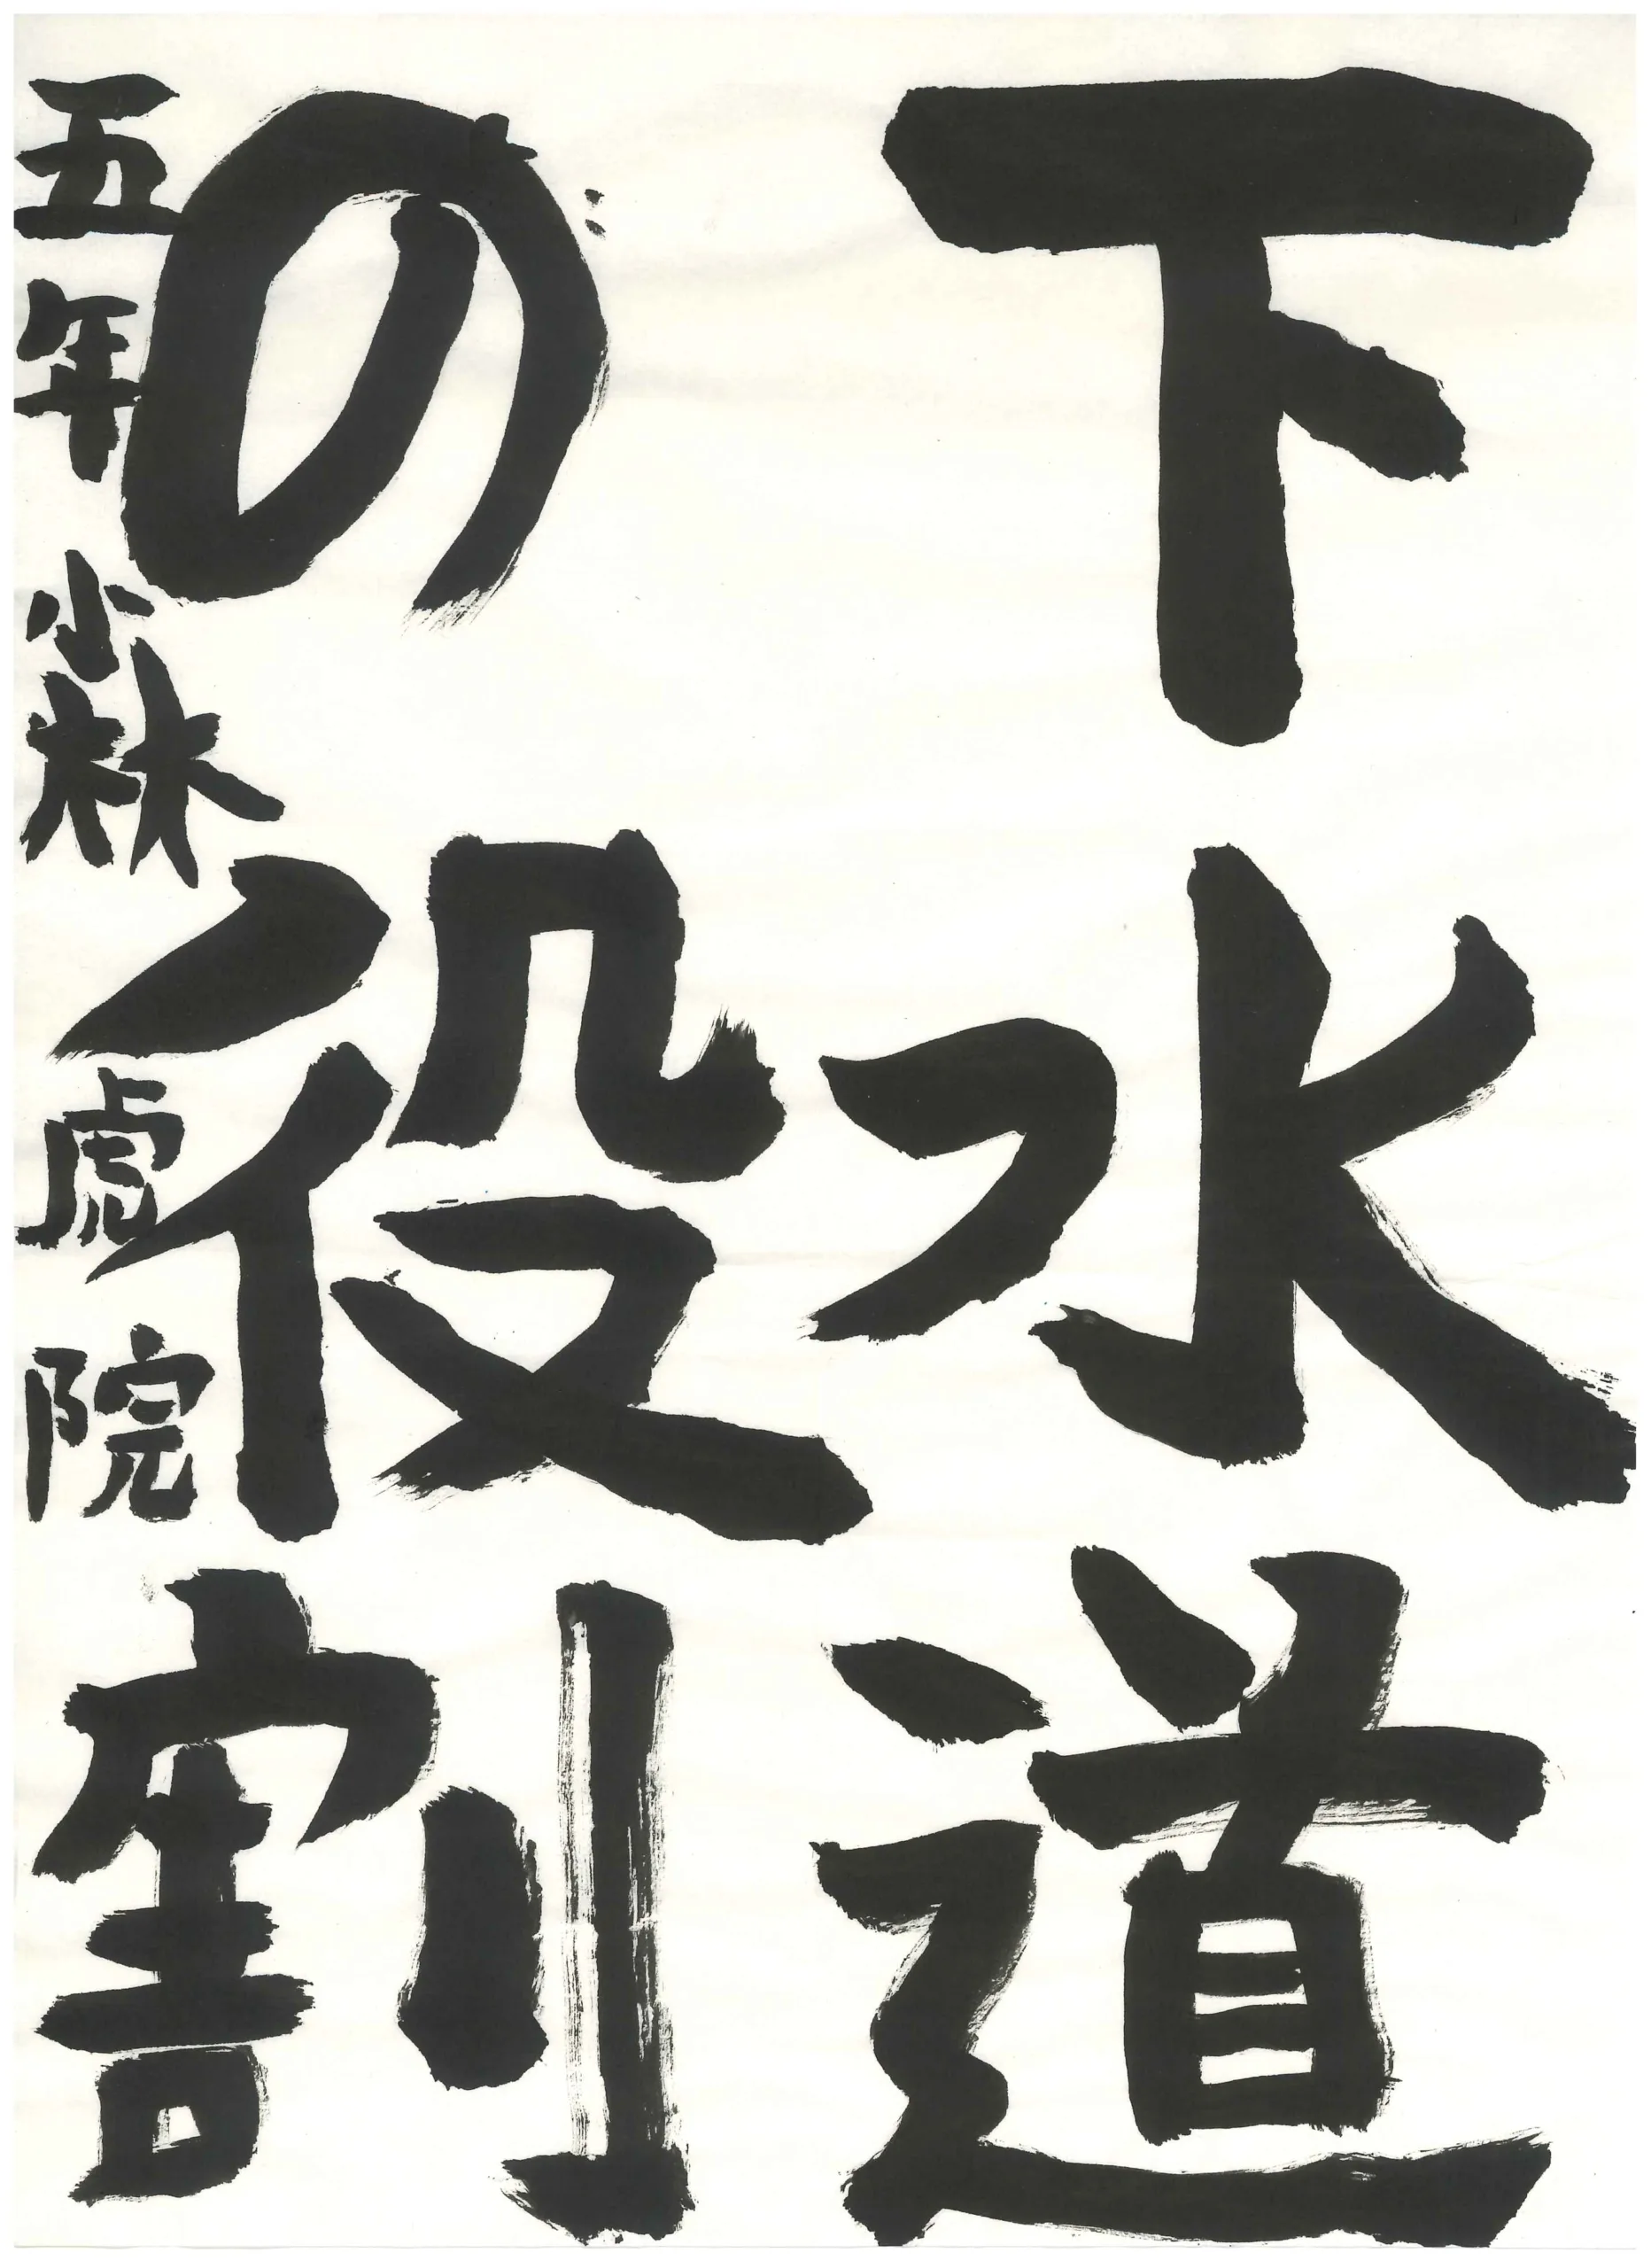 下水道
の役割
五年 小林 虎院